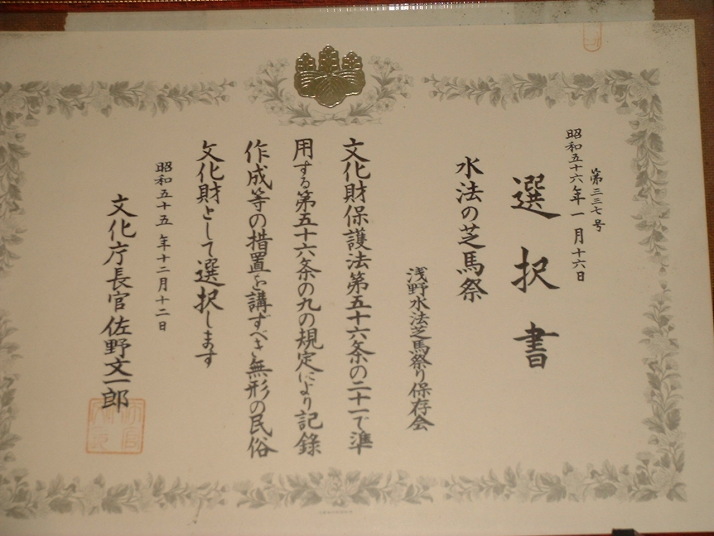 第三三七号
昭和五十六年一月十六日
選択書
水法の芝馬祭
浅野水法芝馬祭り保存会
文化財保護法第五十六条の二十一で準
用する第五十六条の九の規定により記録
作成等の措置を講ずべき無形の民俗
文化財として選択します
昭和五十五年十二月十二日
文化庁長官佐野文一郎